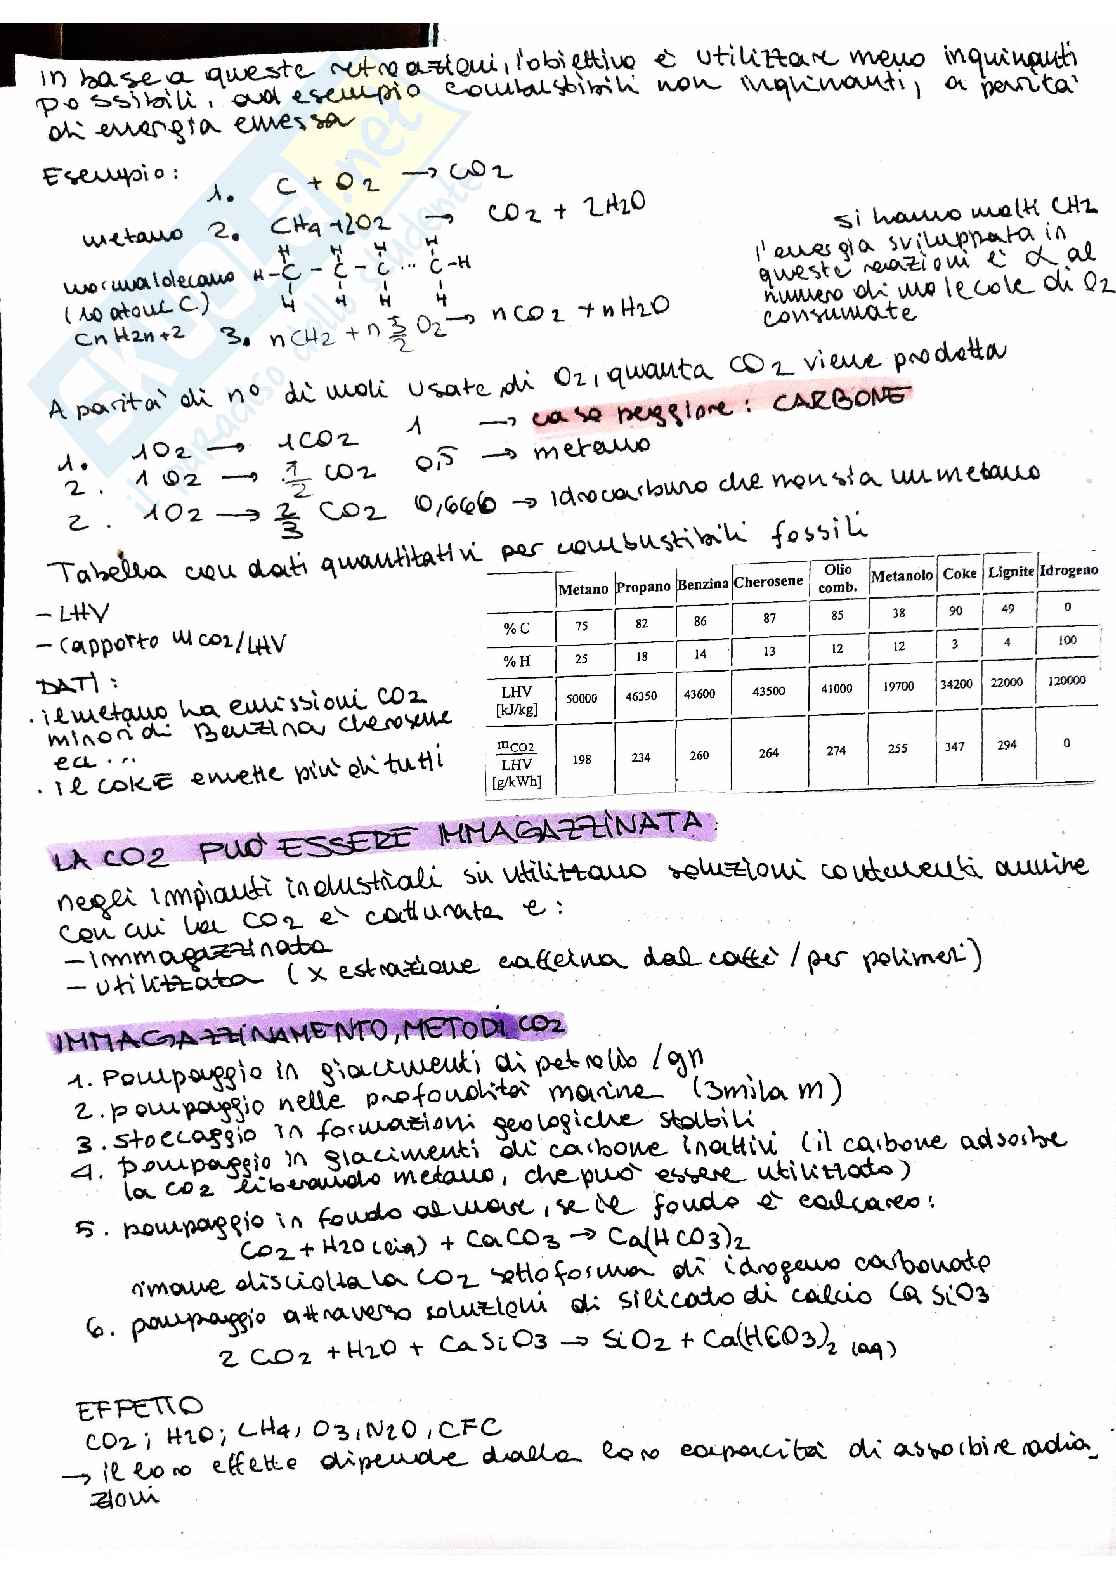 in base a queste retroazioni, l'obiettivo è utilizzare meno inquinanti
possibili, ad esempio combustibili non inquinanti, a parità
di energia emessa
Esempio:
1. C + O2 → CO2
metano 2. CH4 + 2O2 → CO2 + 2H2O
H H H H
normaldecano H-C - C - C ... C-H
(10 atomi C) H H H H
CnH2n+2 3. nCH2 + n 3/2 O2 → nCO2 + nH2O
si hanno molti CH2
l'energia sviluppata in
queste reazioni è α al
numero di molecole di O2
consumate
A parità di n° di moli usate di O2, quanta CO2 viene prodotta
1. 1O2 → 1CO2 1 → caso peggiore: CARBONE
2. 1O2 → 1/2 CO2 0,5 → metano
2. 1O2 → 2/3 CO2 0,666 → idrocarburo che non sia un metano
Tabella con dati quantitativi per combustibili fossili
- LHV
- rapporto mCO2/LHV
DATI:
· il metano ha emissioni CO2
minori di Benzina, cherosene
ecc...
· il COKE emette più di tutti
Metano Propano Benzina Cherosene Olio comb. Metanolo Coke Lignite Idrogeno
% C 75 82 86 87 85 38 90 49 0
% H 25 18 14 13 12 12 3 4 100
LHV [kJ/kg] 50000 46350 43600 43500 41000 19700 34200 22000 120000
mCO2/LHV [g/kWh] 198 234 260 264 274 255 347 294 0
LA CO2 PUÒ ESSERE IMMAGAZZINATA:
negli impianti industriali si utilizzano soluzioni contenenti ammine
con cui la CO2 è catturata e:
- immagazzinata
- utilizzata (x estrazione caffeina dal caffè / per polimeri)
IMMAGAZZINAMENTO, METODI CO2
1. Pompaggio in giacimenti di petrolio / gn
2. pompaggio nelle profondità marine (3mila m)
3. stoccaggio in formazioni geologiche stabili
4. pompaggio in giacimenti di carbone inattivi (il carbone adsorbe
la CO2 liberando metano, che può essere utilizzato)
5. pompaggio in fondo al mare, se il fondo è calcareo:
CO2 + H2O (liq) + CaCO3 → Ca(HCO3)2
rimane disciolta la CO2 sottoforma di idrogeno carbonato
6. pompaggio attraverso soluzioni di silicato di calcio CaSiO3
2 CO2 + H2O + CaSiO3 → SiO2 + Ca(HCO3)2 (aq)
EFFETTO
CO2; H2O; CH4, O3, N2O, CFC
→ il loro effetto dipende dalla loro capacità di assorbire radia
zioni
SKUOLA.net
il paradiso dello studente